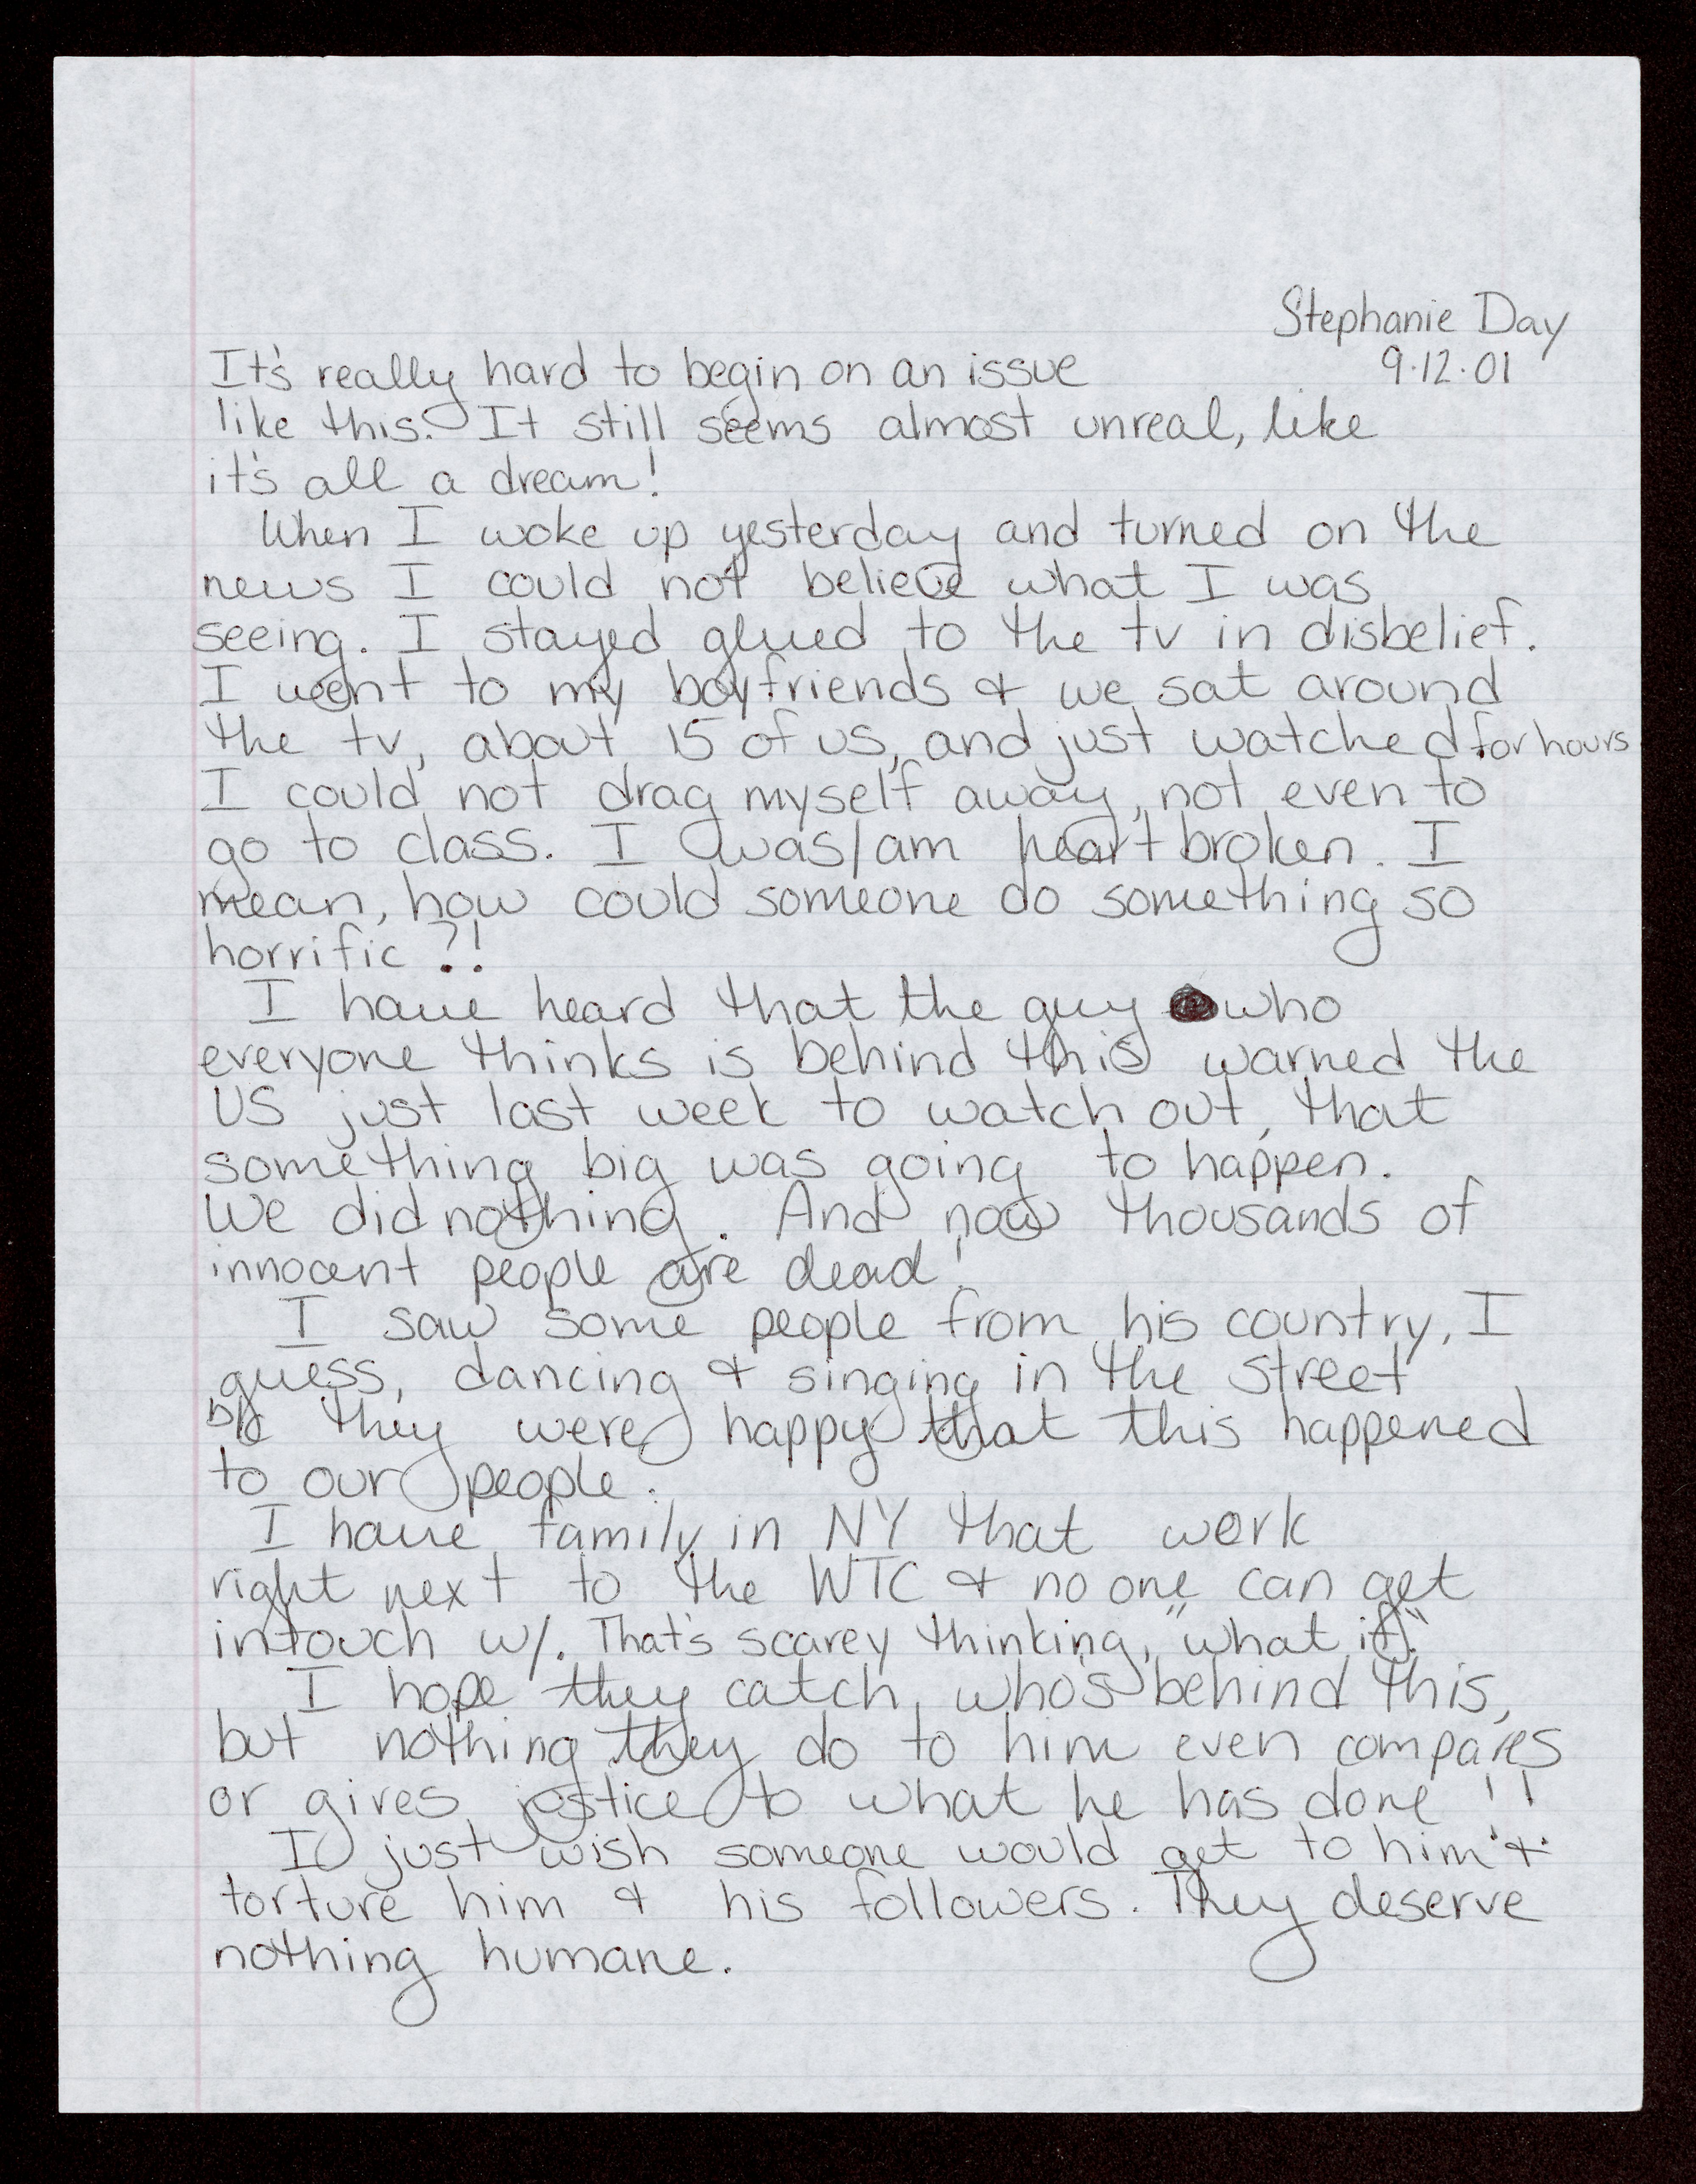 Stephanie Day
9.12.01
It's really hard to begin on an issue
like this. It still seems almost unreal, like
it's all a dream!
When I woke up yesterday and turned on the
news I could not believe what I was
seeing. I stayed glued to the tv in disbelief.
I went to my boyfriends & we sat around
the tv, about 15 of us, and just watched for hours.
I could not drag myself away, not even to
go to class. I was/am heart broken. I
mean, how could someone do something so
horrific?!
I have heard that the guy who
everyone thinks is behind this warned the
US just last week to watch out, that
something big was going to happen.
We did nothing. And now thousands of
innocent people are dead!
I saw some people from his country, I
guess, dancing & singing in the street
b/c they were happy that this happened
to our people.
I have family in NY that work
right next to the WTC & no one can get
intouch w/. That's scarey thinking, "what if".
I hope they catch who's behind this,
but nothing they do to him even compares
or gives justice to what he has done!!
I just wish someone would get to him &
torture him & his followers. They deserve
nothing humane.